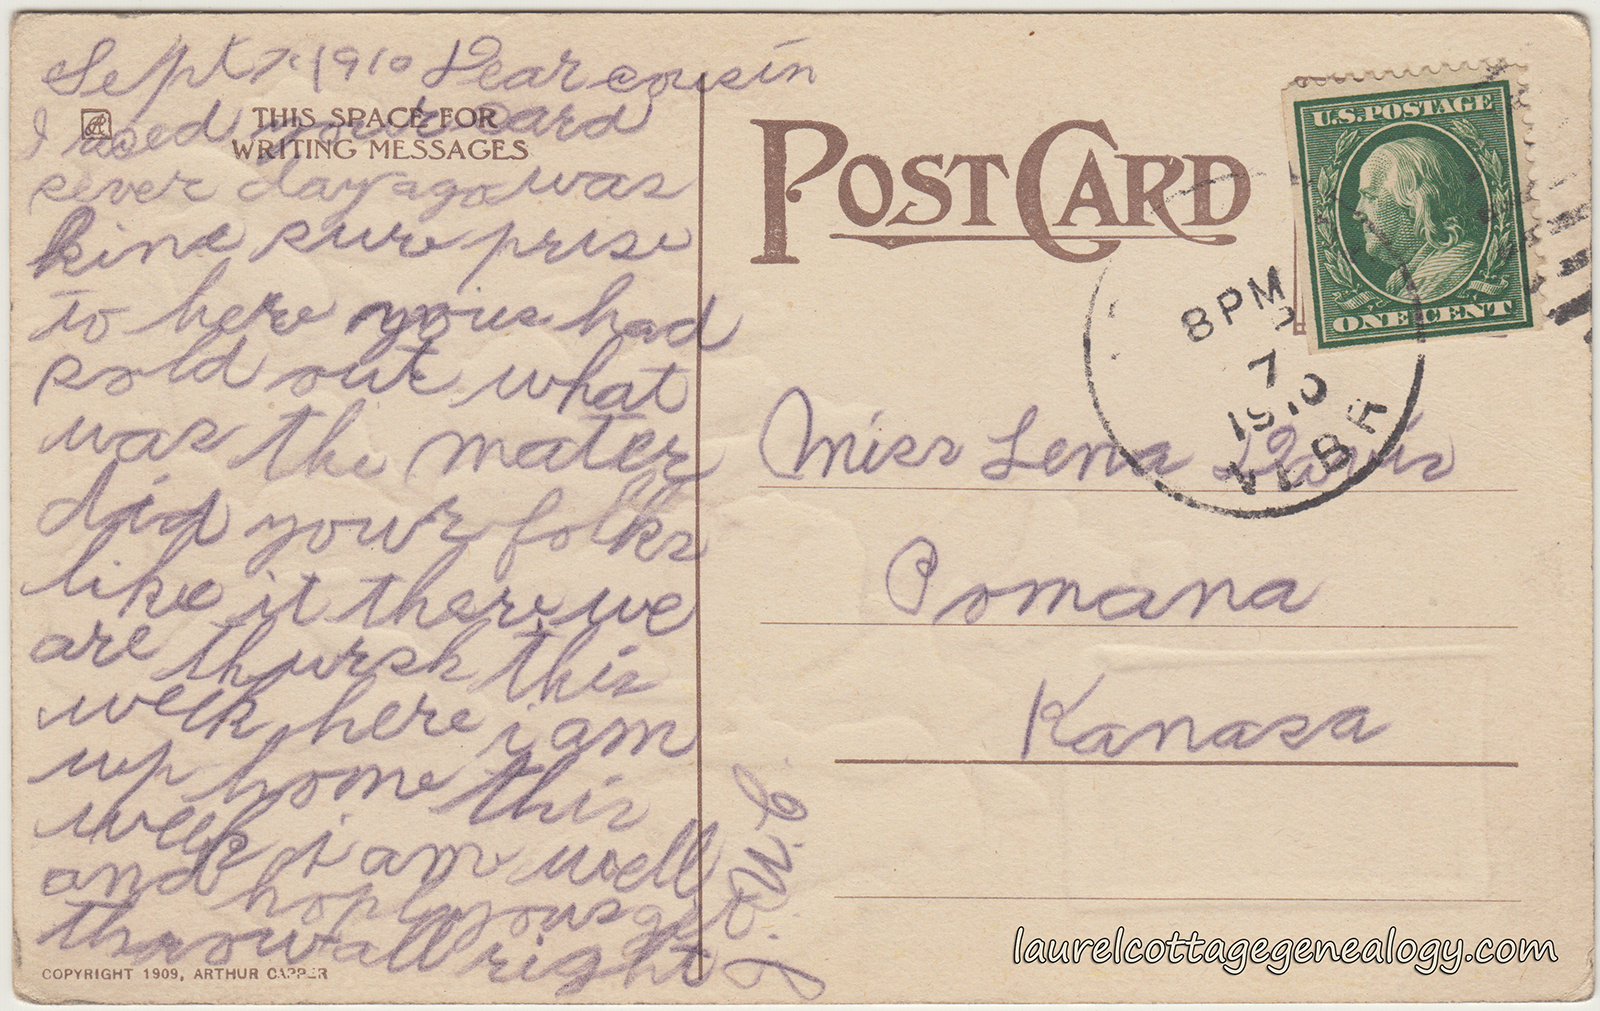 Sept 7. 1910 Dear cousin
THIS SPACE FOR
WRITING MESSAGES
I rosed your card
sever day ago was
kine sure prise
to here yous had
sold out what
was the mater
did your folks
like it there we
are thursh this
week here i am
up home this
week i am well
and hople yous
throw all right
COPYRIGHT 1909, ARTHUR CAPPER
POST CARD
U.S. POSTAGE
ONE CENT
8 PM
7
1910
NEBR
Miss Lena Davis
Pomana
Kanasa
laurelcottagegenealogy.com